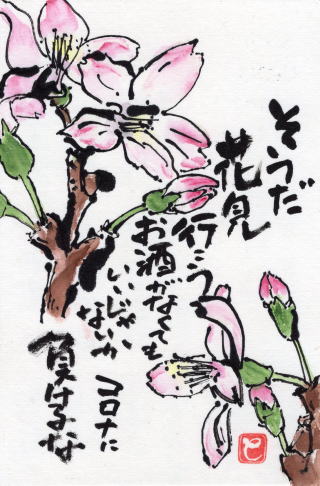 そうだ
花見
行こう
お酒がなくても
いいじゃ
ないか
コロナに
負けるな
と